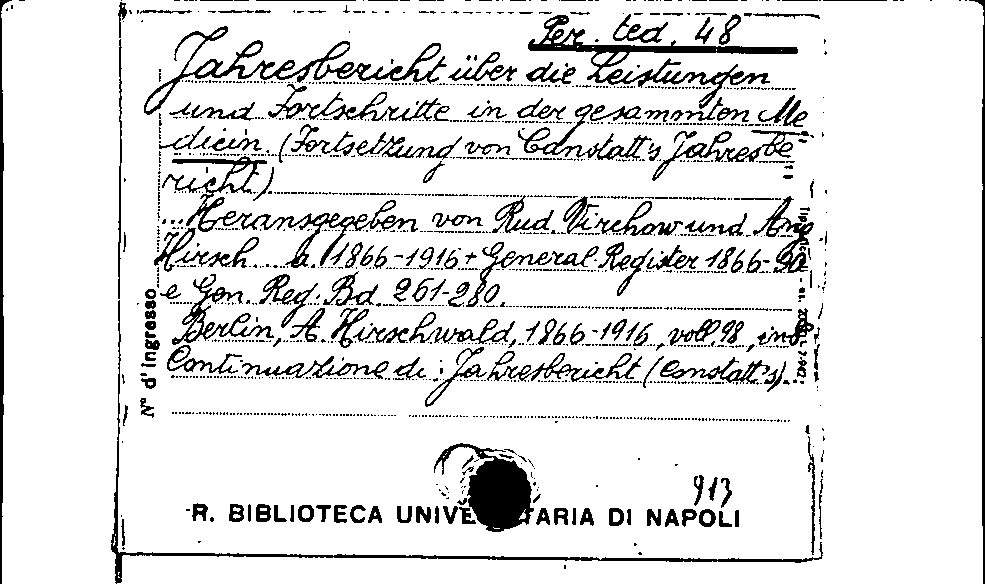 Per. ted. 48
Jahresbericht über die Leistungen
und Fortschritte in der gesammten Me
dicin. (Fortsetzung von Canstatt's Jahresbe
richt)
...Heransgegeben von Rud. Virchow und Aug
Hirsch... a. 1866-1916 + General Register 1866-90
e Gen. Reg. Bd. 261-280.
Berlin, A. Hirschwald, 1866-1916, voll. 98, in8
Continuazione di: Jahresbericht (Canstatt's).
N° d'ingresso
913
R. BIBLIOTECA UNIVE TARIA DI NAPOLI